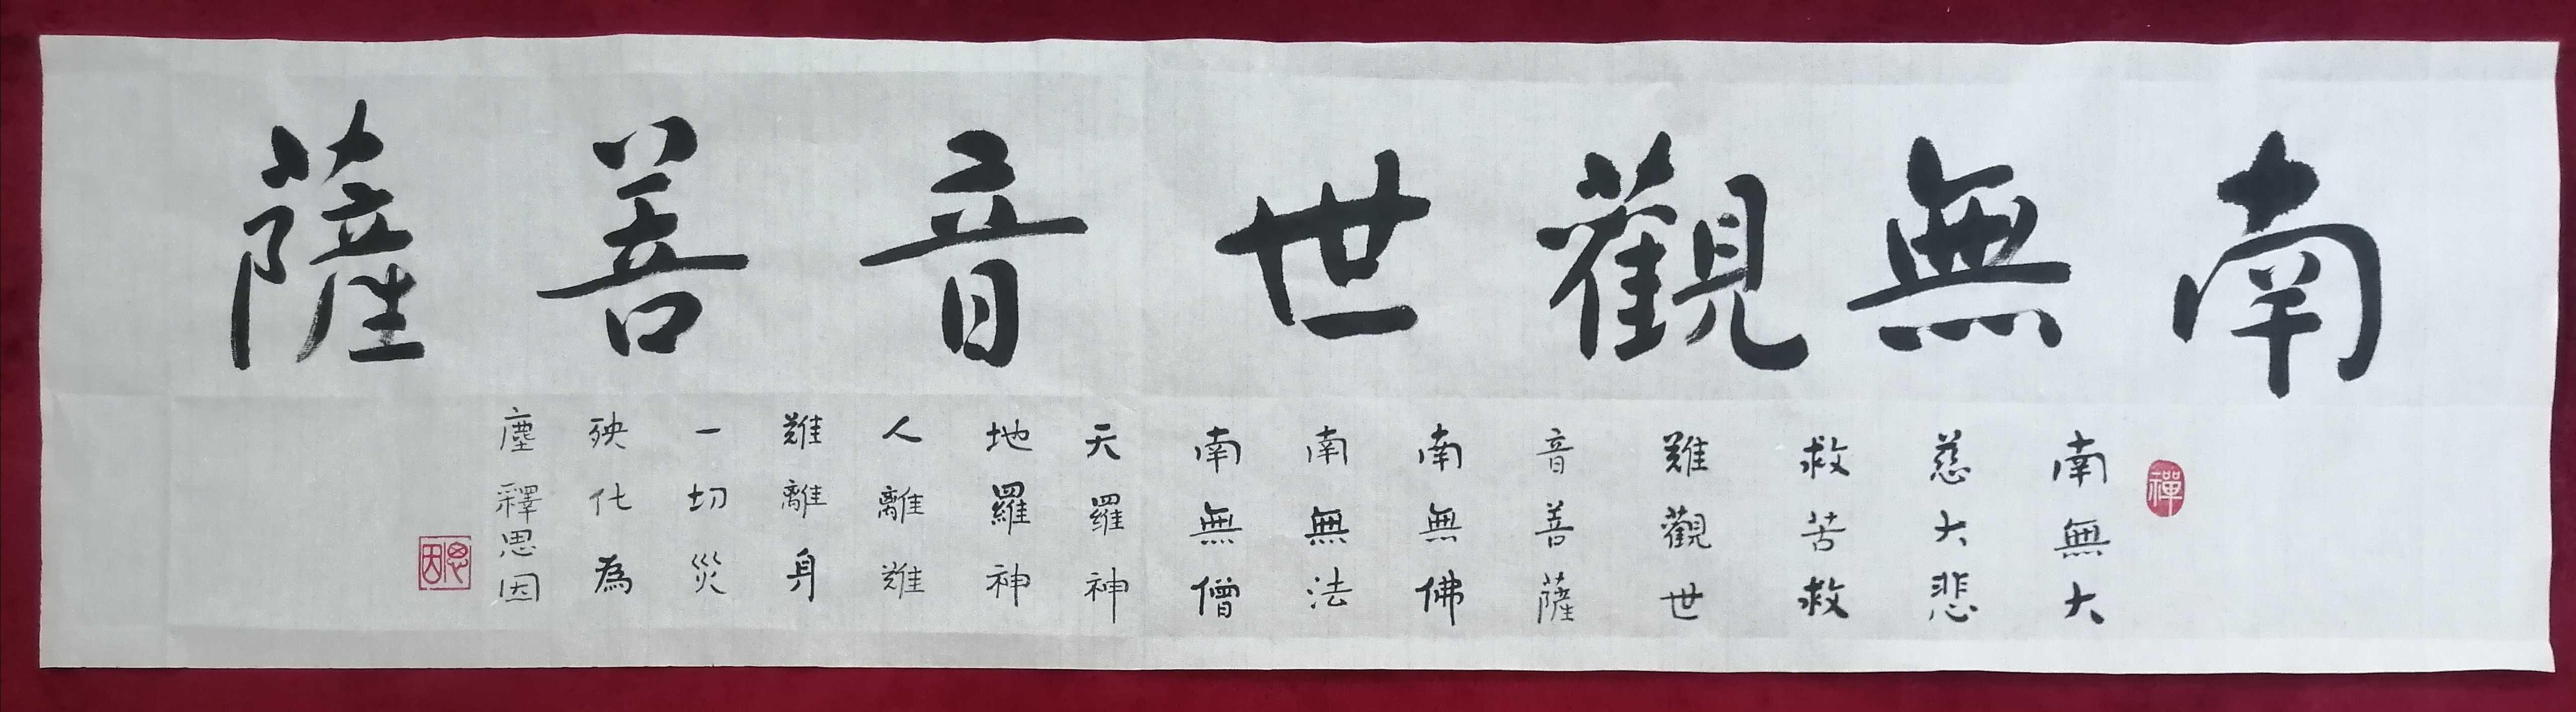 南無觀世音菩薩
禪
南無大
慈大悲
救苦救
難觀世
音菩薩
南無佛
南無法
南無僧
天羅神
地羅神
人離難
難離身
一切災
殃化為
塵釋思因
思因